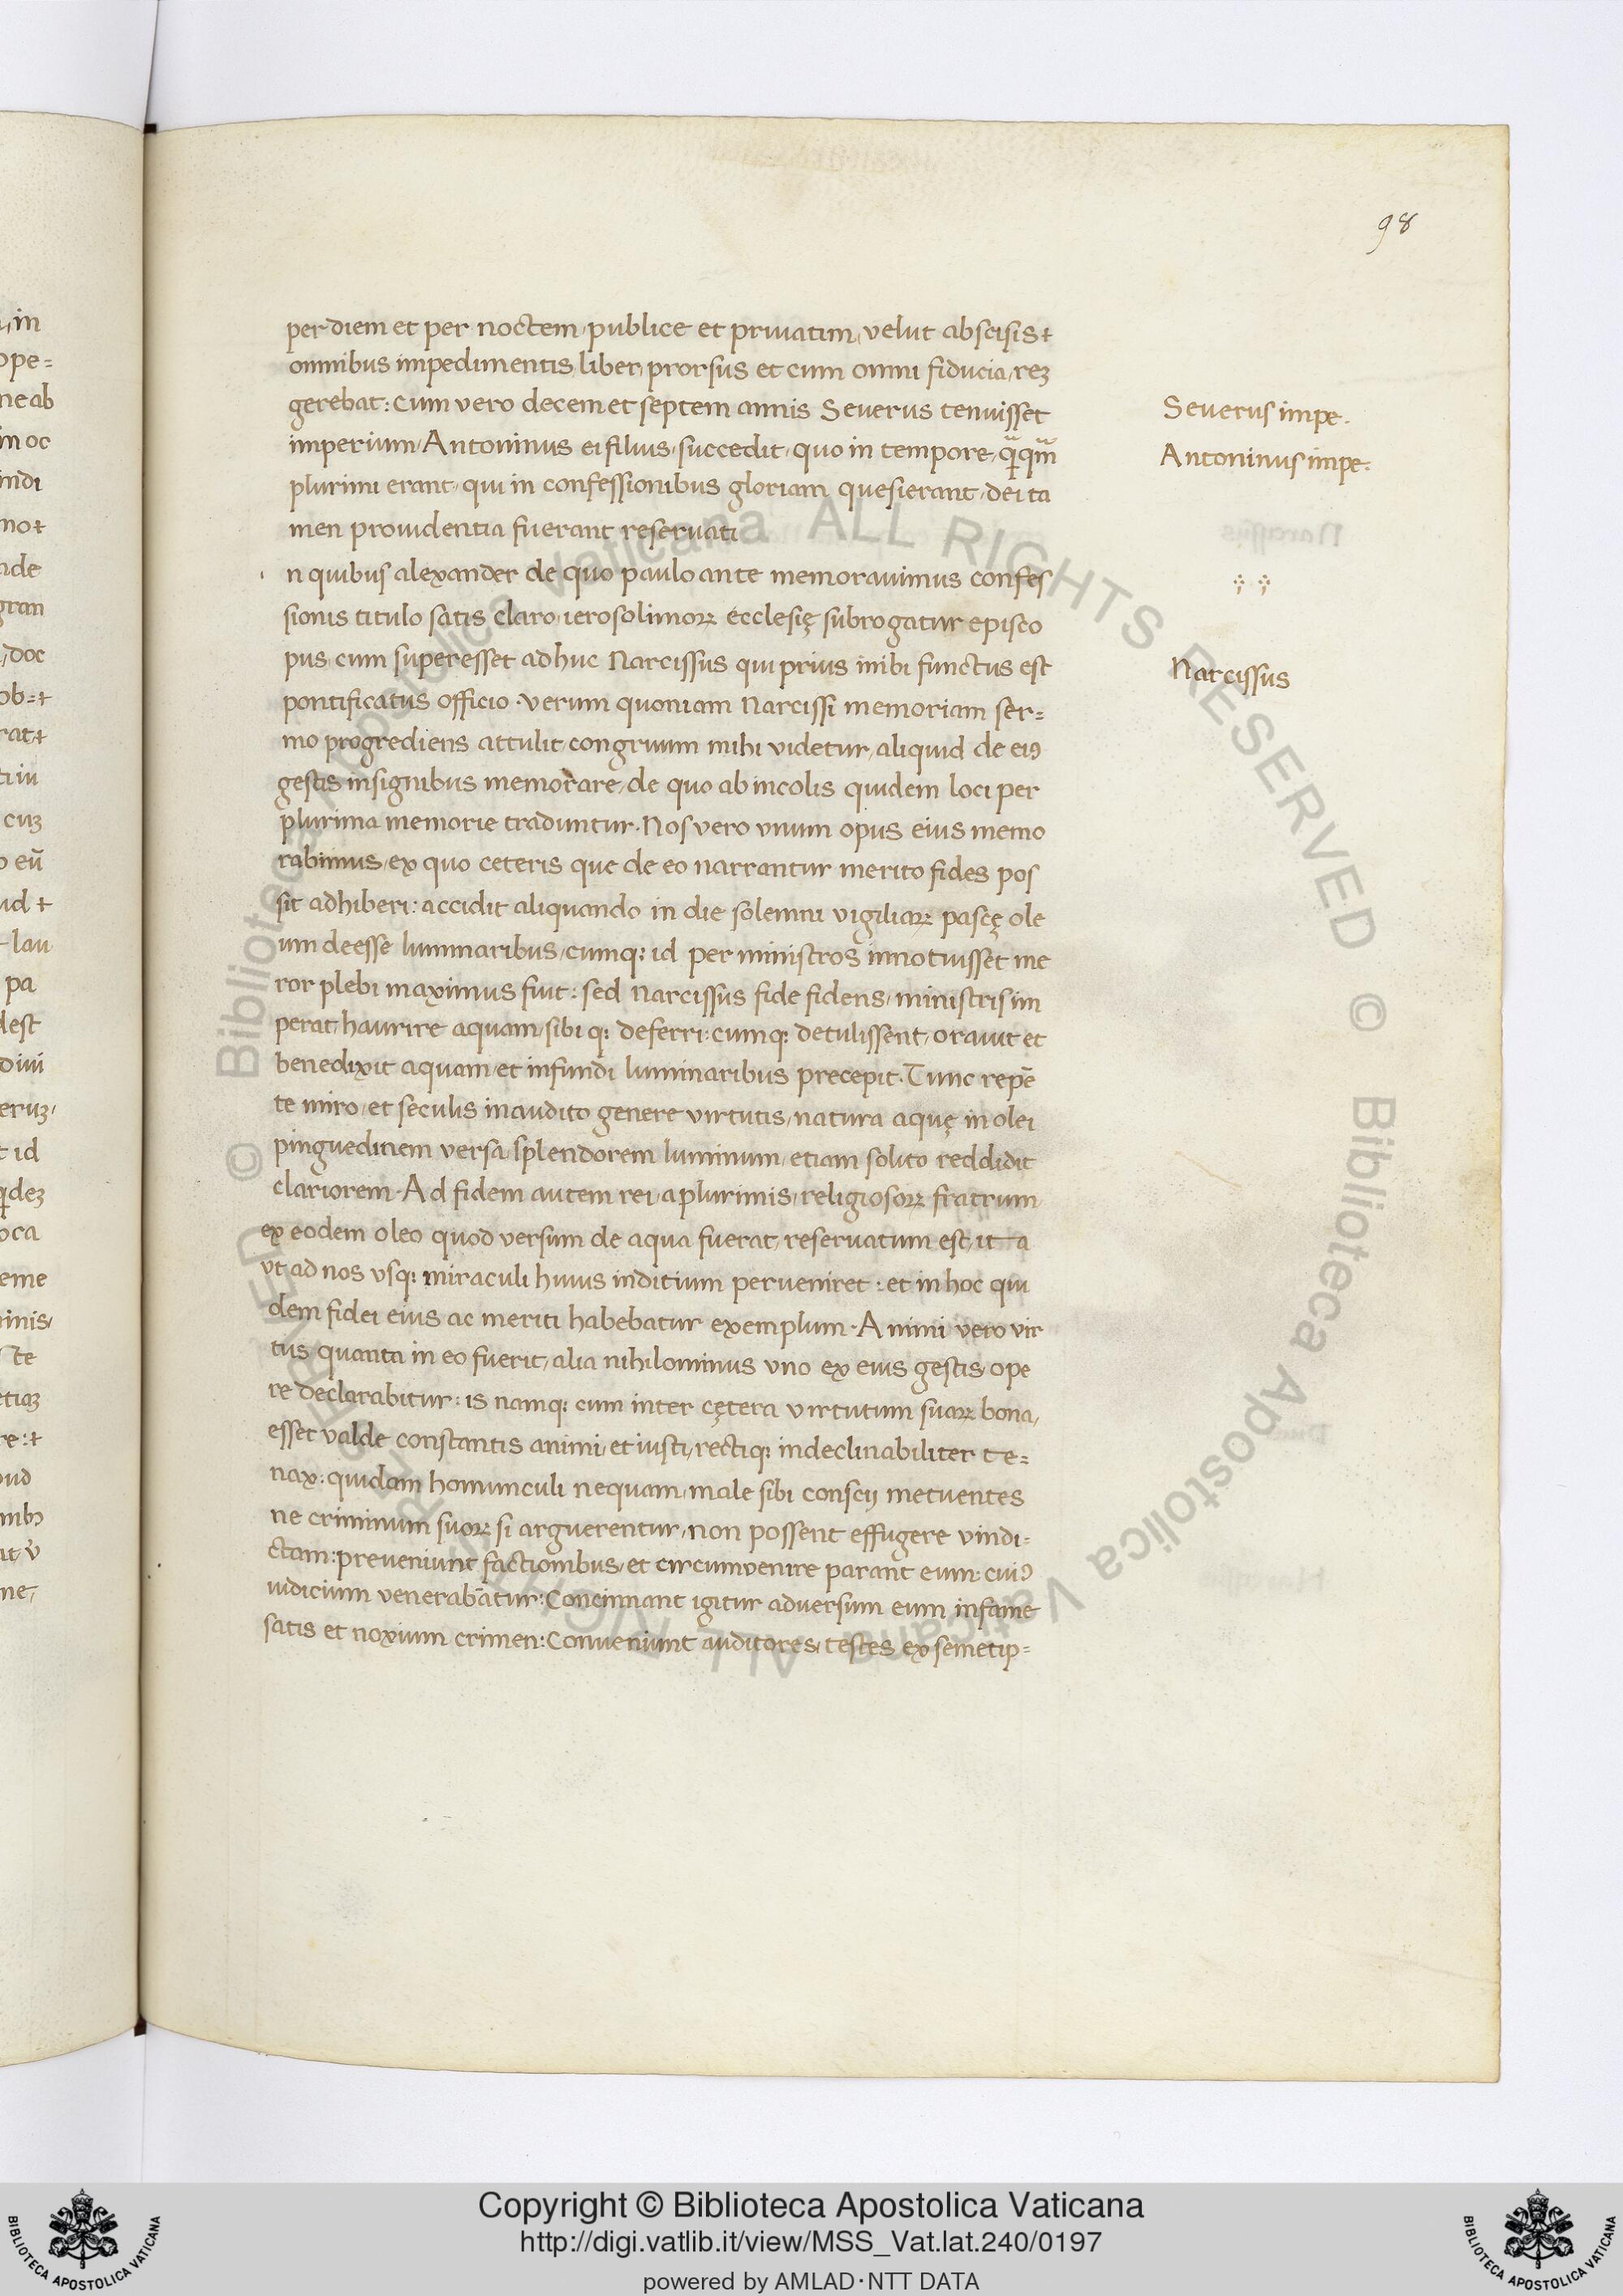 98
per diem et per noctem, publice et priuatim, velut abscisis +
omnibus impedimentis, liber, prorsus et cum omni fiducia, reꝫ
gerebat: cum vero decem et septem annis Seuerus tenuisset
imperium, Antoninus ei filius, succedit, quo in tempore, q̄q̄m
plurimi erant, qui in confessionibus gloriam quesierant, dei ta
men prouidentia fuerant reseruati
n quibus alexander de quo paulo ante memorauimus confes
sionis titulo satis claro, ierosolimoꝝ ecclesię subrogatur episco
pus, cum superesset adhuc Narcissus qui prius inibi functus est
pontificatus officio. verum quoniam Narcissi memoriam ser=
mo progrediens attulit congruum mihi videtur, aliquid de eiꝰ
gestis insignibus memorare, de quo ab incolis quidem loci per
plurima memorie traduntur. Nos vero vnum opus eius memo
rabimus, ex quo ceteris que de eo narrantur merito fides pos
sit adhiberi: accidit aliquando in die solemni vigiliaꝝ pascę ole
um deesse luminaribus, cumq; id per ministros innotuisset me
ror plebi maximus fuit: sed Narcissus fide fidens, ministris im
perat, haurire aquam, sibi q; deferri: cumq; detulissent, orauit et
benedixit aquam, et infundi luminaribus precepit. Tunc repē
te miro, et seculis inaudito genere virtutis, natura aquę in olei
pinguedinem versa, splendorem luminum, etiam solito reddidit
clariorem. Ad fidem autem rei, a plurimis, religiosoꝝ fratrum
ex eodem oleo quod versum de aqua fuerat, reseruatum est, ita
vt ad nos vsq; miraculi huius inditium perueniret: et in hoc qui
dem fidei eius ac meriti habebatur exemplum. Animi vero vir
tus quanta in eo fuerit, alia nihilominus vno ex eius gestis, ope
re declarabitur: is namq; cum inter cętera virtutum suaꝝ bona,
esset valde constantis animi, et iusti, rectiq; indeclinabiliter te=
nax: quidam homunculi nequam, male sibi conscij metuentes
ne criminum suoꝝ si arguerentur, non possent effugere vindi=
ctam: preueniunt factionibus, et circumvenire parant eum: cuiꝰ
iudicium venerabātur: Concinnant igitur adversum eum infame
satis et noxium crimen: Conueniunt auditores, testes, ex semetip=
Seuerus impe.
Antoninus impe.
Narcissus
© Biblioteca Apostolica Vaticana ALL RIGHTS RESERVED © Biblioteca Apostolica Vaticana ALL RIGHTS RESERVED
Copyright © Biblioteca Apostolica Vaticana
http://digi.vatlib.it/view/MSS_Vat.lat.240/0197
powered by AMLAD·NTT DATA
BIBLIOTECA APOSTOLICA VATICANA
BIBLIOTECA APOSTOLICA VATICANA